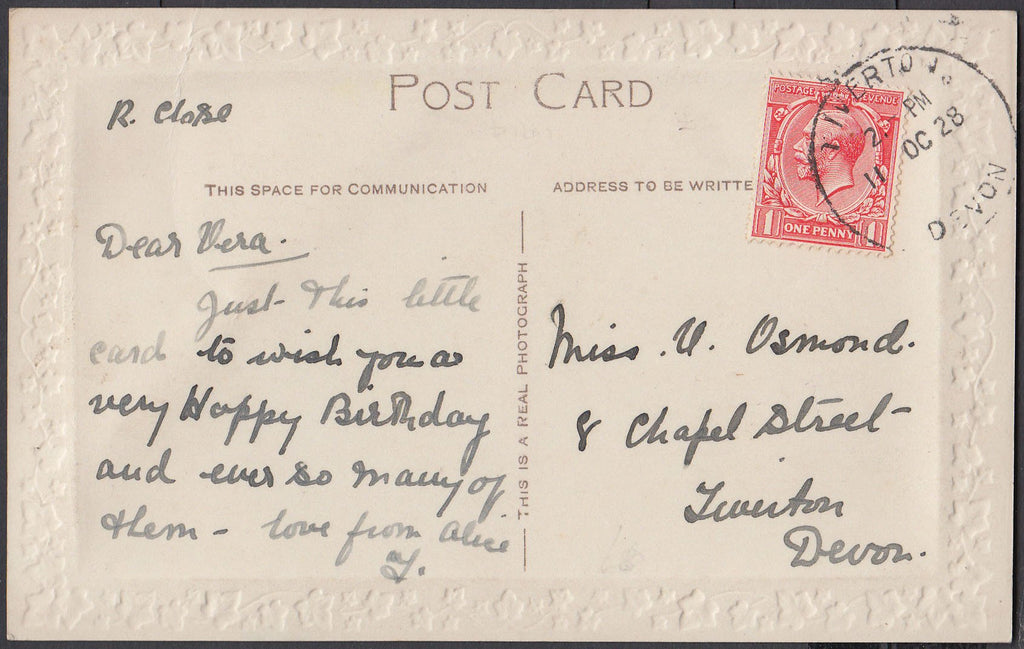 POST CARD
R. Close
THIS SPACE FOR COMMUNICATION
ADDRESS TO BE WRITTE
Dear Vera.
Just this little
card to wish you a
very Happy Birthday
and ever so many of
them - love from Alice
THIS IS A REAL PHOTOGRAPH
POSTAGE REVENUE
1 ONE PENNY 1
TIVERTON
PM
11 OC 28
DEVON
Miss. V. Osmond.
8 Chapel Street
Tiverton
Devon.